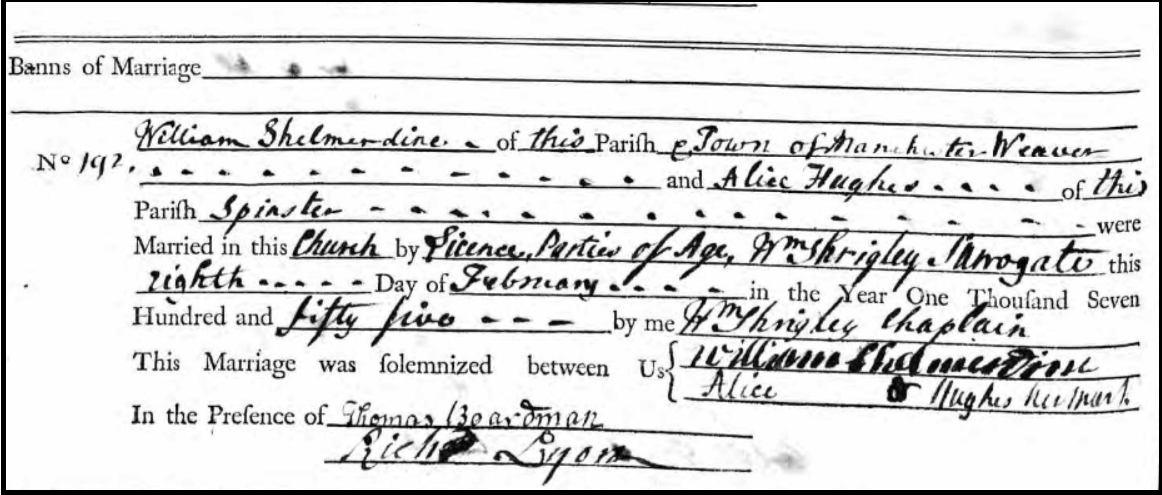 Banns of Marriage
William Shelmerdine of this Pariſh & Town of Manchester Weaver
No 192. and Alice Hughes of this
Pariſh Spinster were
Married in this Church by Licence, Parties of Age, Wm Shrigley Surrogate this
eighth Day of February in the Year One Thouſand Seven
Hundred and fifty five by me Wm Shrigley Chaplain
This Marriage was ſolemnized between Us William Shelmerdine
Alice Hughes her mark
In the Preſence of Thomas Boardman
Richd Lyon